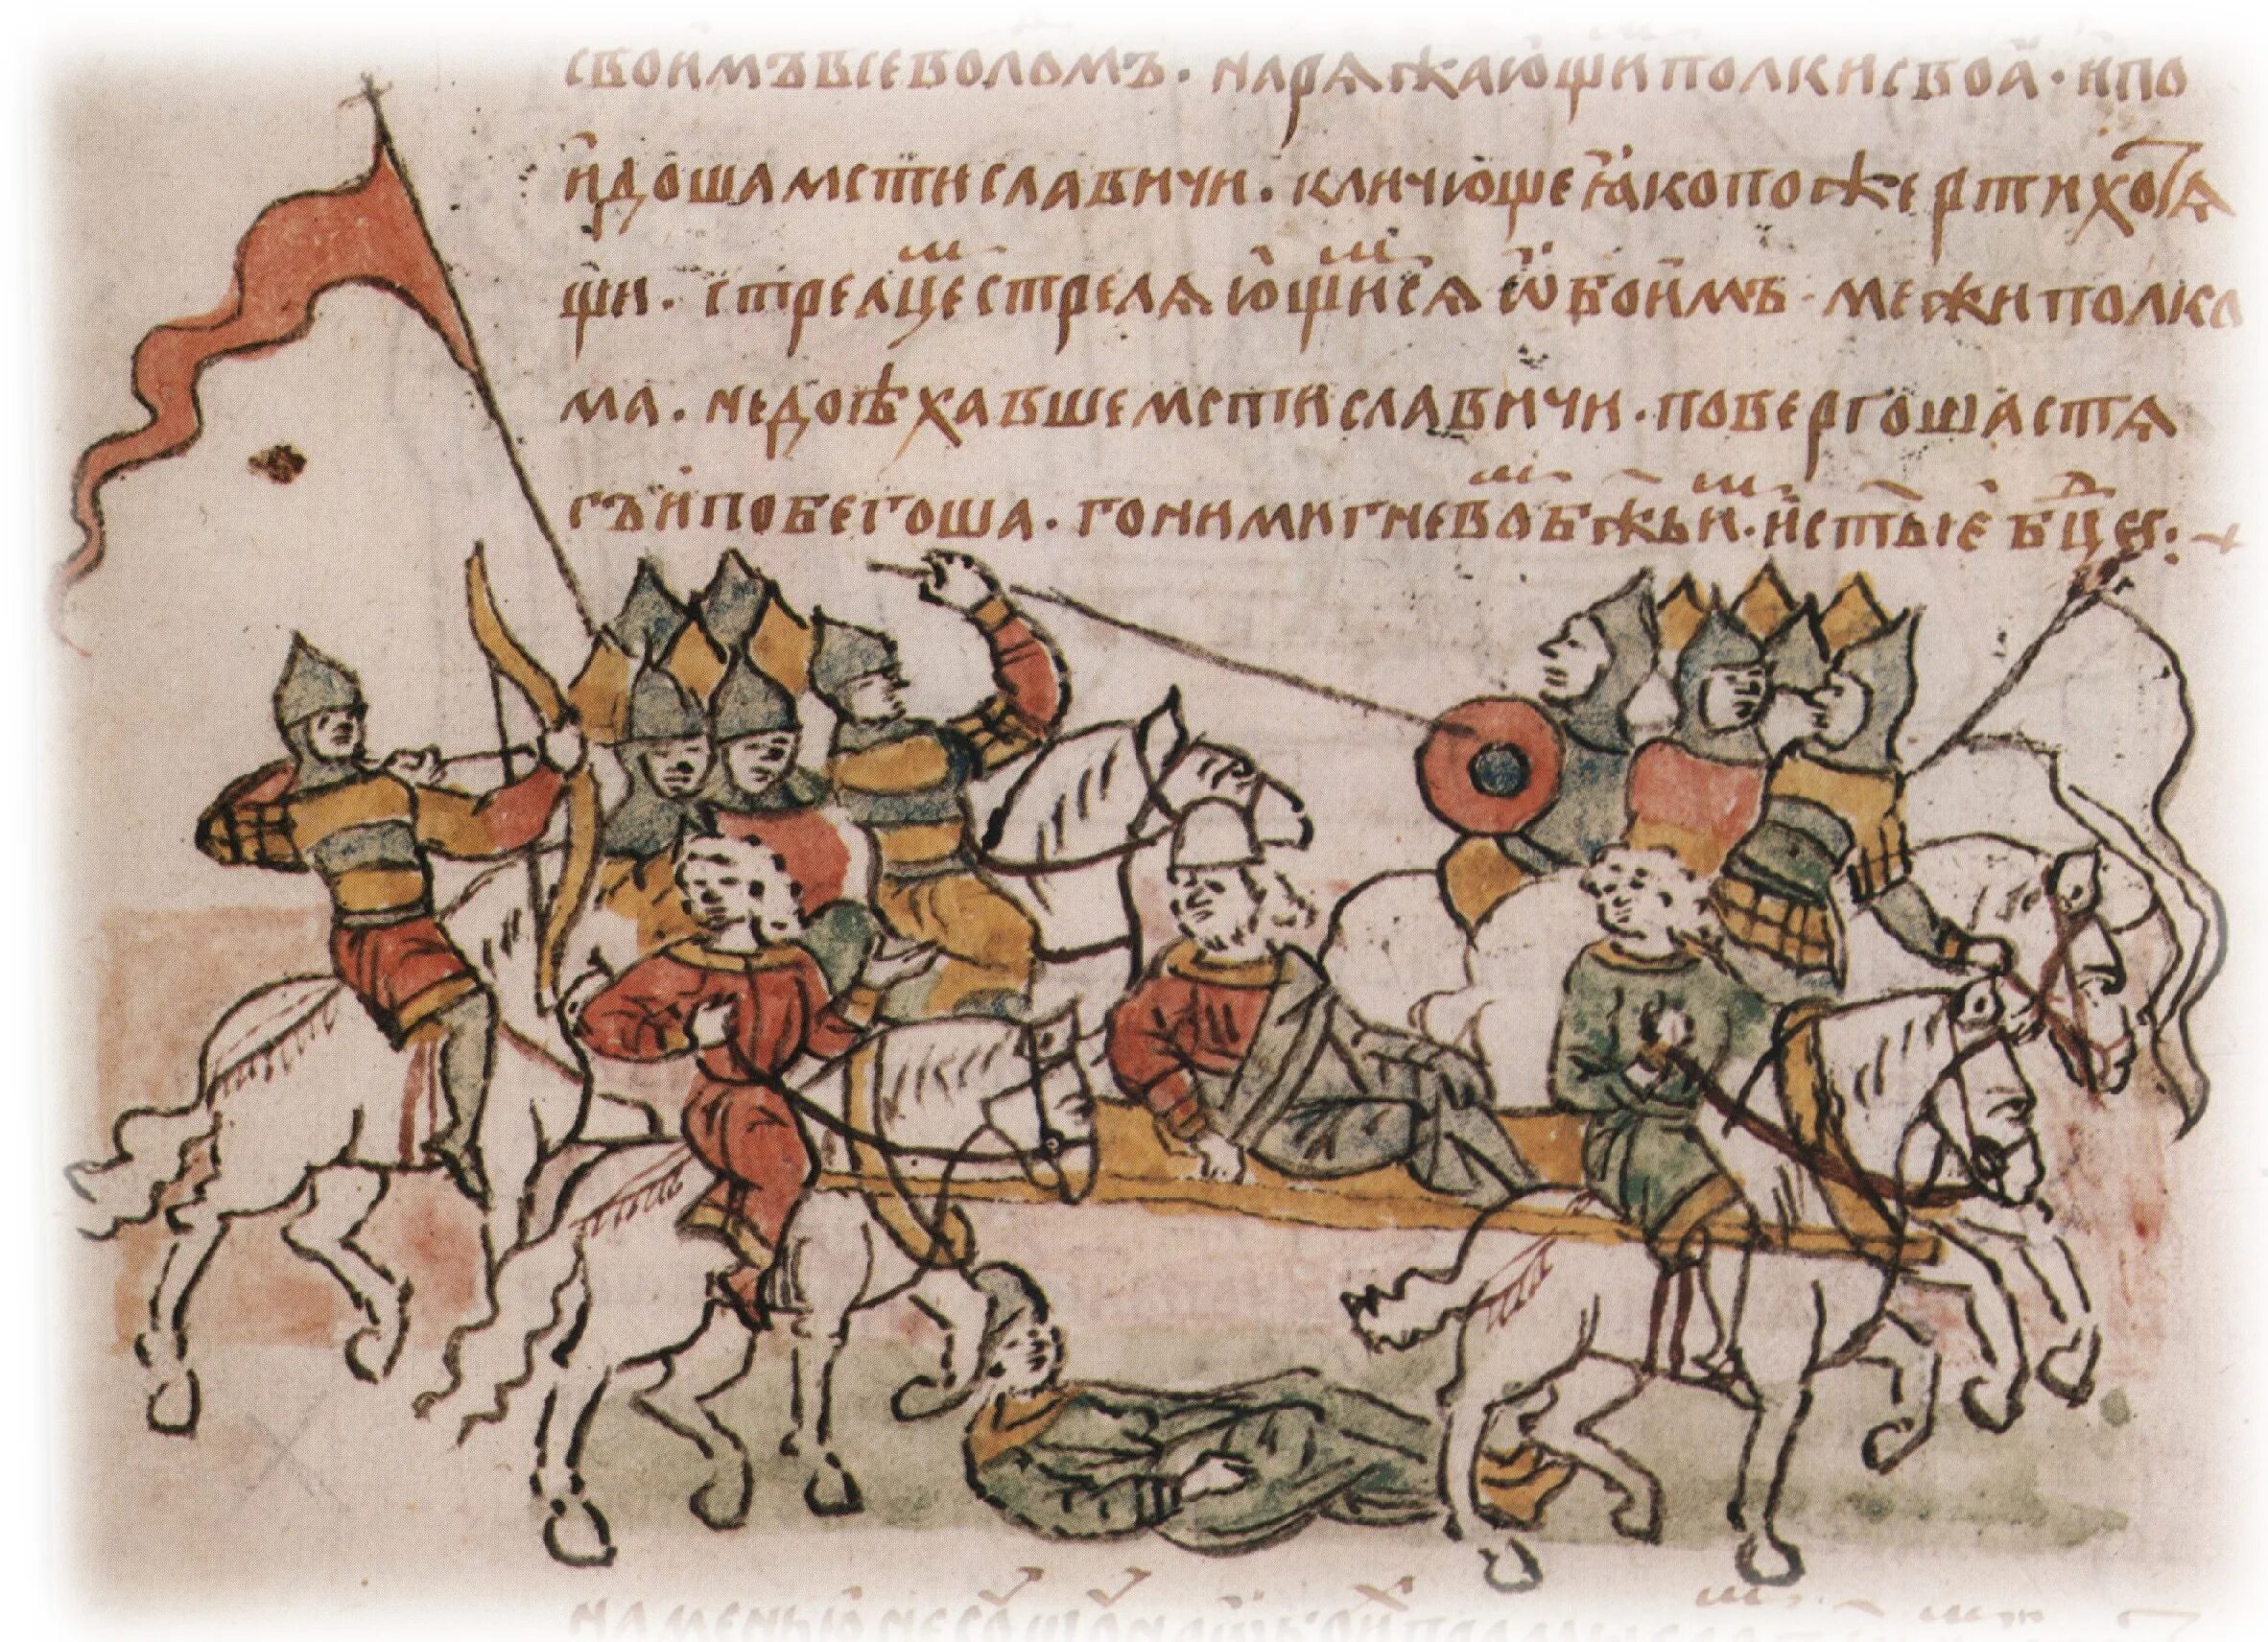 своимъ всеволомъ · нарѧжающи полки своѧ · и по
идоша мстиславичи · кличюще ꙗко пожерти хотѧ
щи · стрелцеⷨ стрелѧющиⷨсѧ ѡбоимъ · межи полко
ма · не доѣхавше мстиславичи · повергоша стѧ
гъ и побегоша · гоними гневоⷨ бж҃ьиⷨ · и ст҃ыє бц҃є